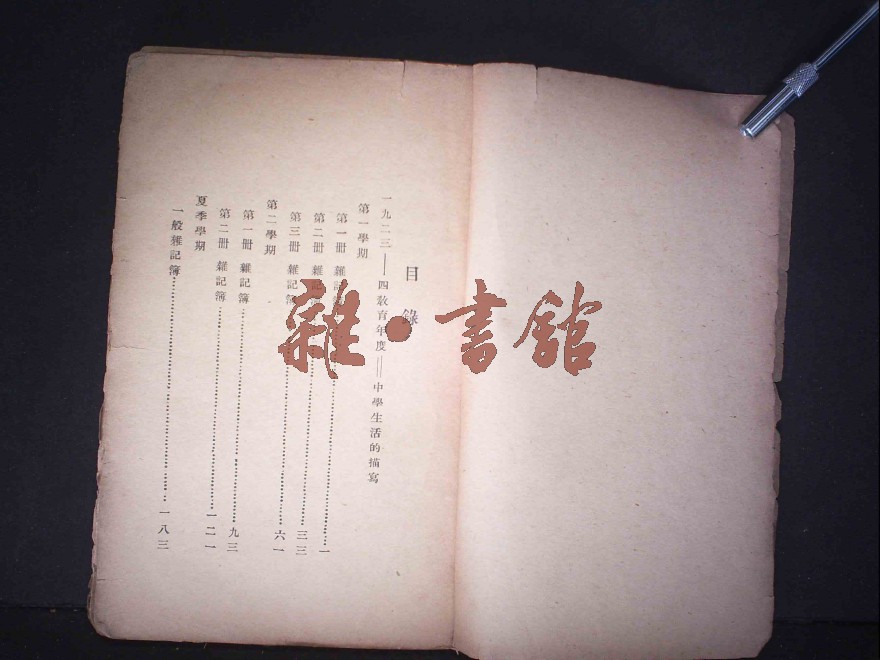 目錄
一九二三——四教育年度——中學生活的描寫
第一學期
第一冊 雜記簿……一
第二冊 雜記簿……三三
第三冊 雜記簿……六一
第二學期
第一冊 雜記簿……九三
第二冊 雜記簿……一二一
夏季學期
一般雜記簿……一八三
雜·書館